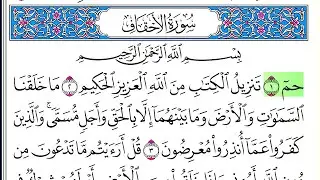 سُورَةُ الأَحْقَافِ
بِسْمِ اللَّهِ الرَّحْمَٰنِ الرَّحِيمِ
حمٓ ١ تَنزِيلُ الْكِتَابِ مِنَ اللَّهِ الْعَزِيزِ الْحَكِيمِ ٢ مَا خَلَقْنَا
السَّمَٰوَٰتِ وَالْأَرْضَ وَمَا بَيْنَهُمَآ إِلَّا بِالْحَقِّ وَأَجَلٍ مُّسَمًّى ۚ وَالَّذِينَ
كَفَرُوا عَمَّآ أُنذِرُوا مُعْرِضُونَ ٣ قُلْ أَرَءَيْتُم مَّا تَدْعُونَ مِن